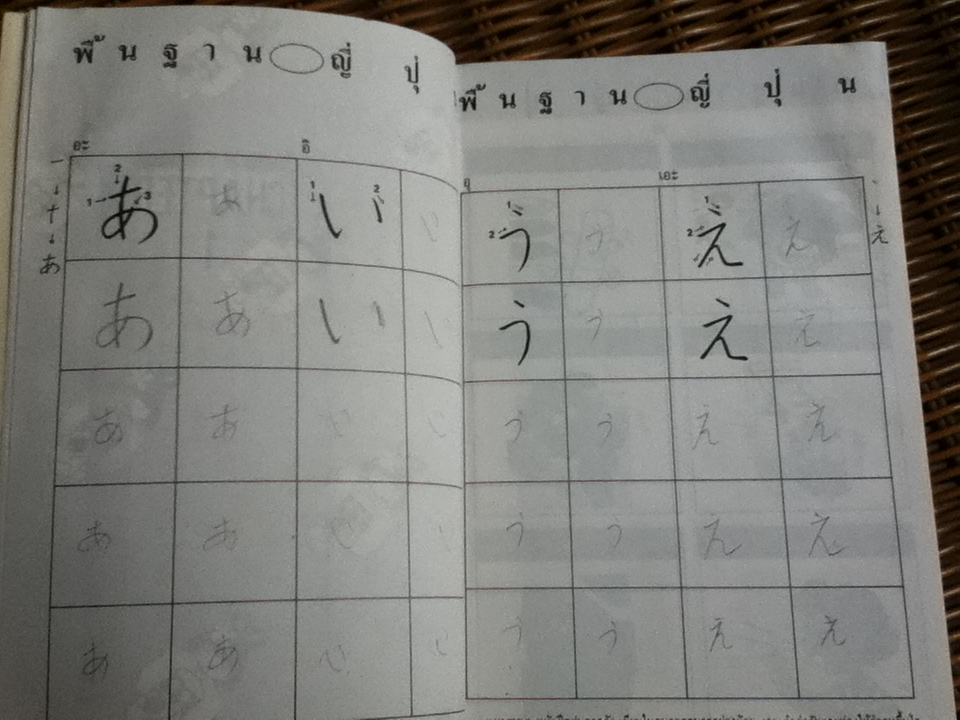 พื้นฐาน ญี่ปุ่
อะ อิ
一 1 2 3 あ あ 1 い 2 い
↓
十
↓
あ
あ あ い い
あ あ い い
あ あ い い
あ あ い い
พื้นฐาน ญี่ปุ่น
อุ เอะ
1 2 う う 1 2 え え
↓
え
う う え え
う う え え
う う え え
う う え え